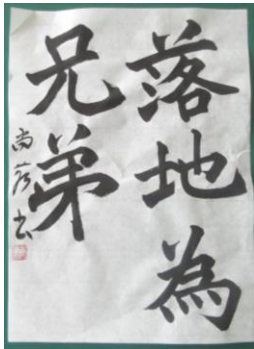 落地為
兄弟